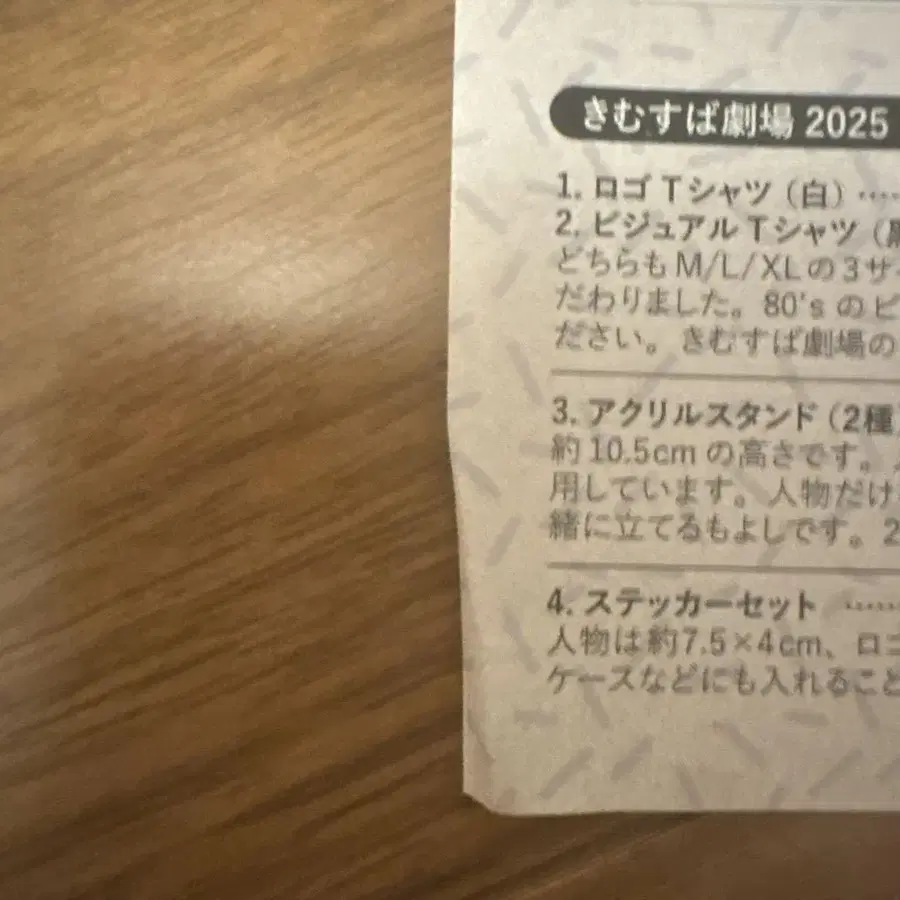 きむすば劇場 2025
1. ロゴ Tシャツ（白）‥‥
2. ビジュアル Tシャツ（黒
どちらも M/L/XL の 3 サイ
だわりました。80's のビ
ださい。きむすば劇場の
3. アクリルスタンド（2種）
約 10.5cm の高さです。
用しています。人物だけ
緒に立てるもよしです。2
4. ステッカーセット ‥‥‥
人物は約7.5×4cm、ロゴ
ケースなどにも入れること